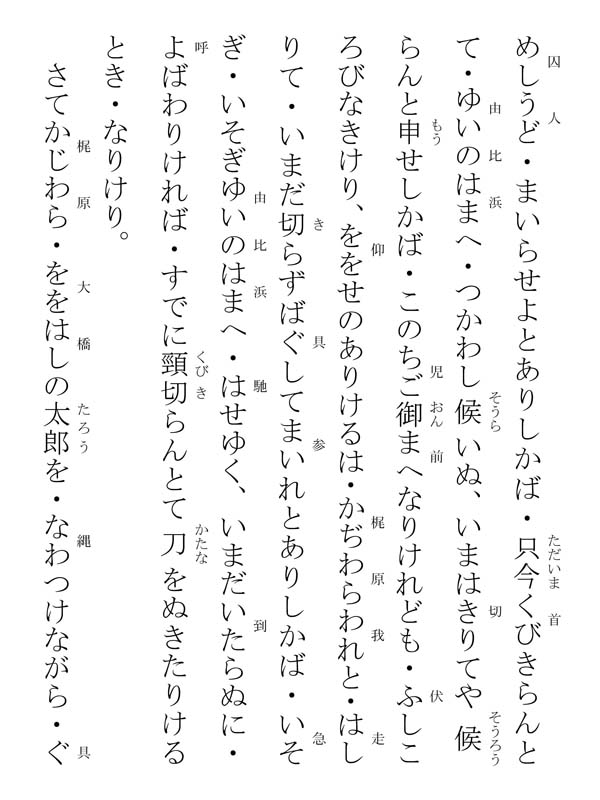 めしうど・まいらせよとありしかば・只今くびきらんと
て・ゆいのはまへ・つかわし候いぬ、いまはきりてや候
らんと申せしかば・このちご御まへなりけれども・ふしこ
ろびなきけり、ををせのありけるは・かぢわらわれと・はし
りて・いまだ切らずばぐしてまいれとありしかば・いそ
ぎ・いそぎゆいのはまへ・はせゆく、いまだいたらぬに・
よばわりければ・すでに頸切らんとて刀をぬきたりける
とき・なりけり。
さてかじわら・ををはしの太郎を・なわつけながら・ぐ